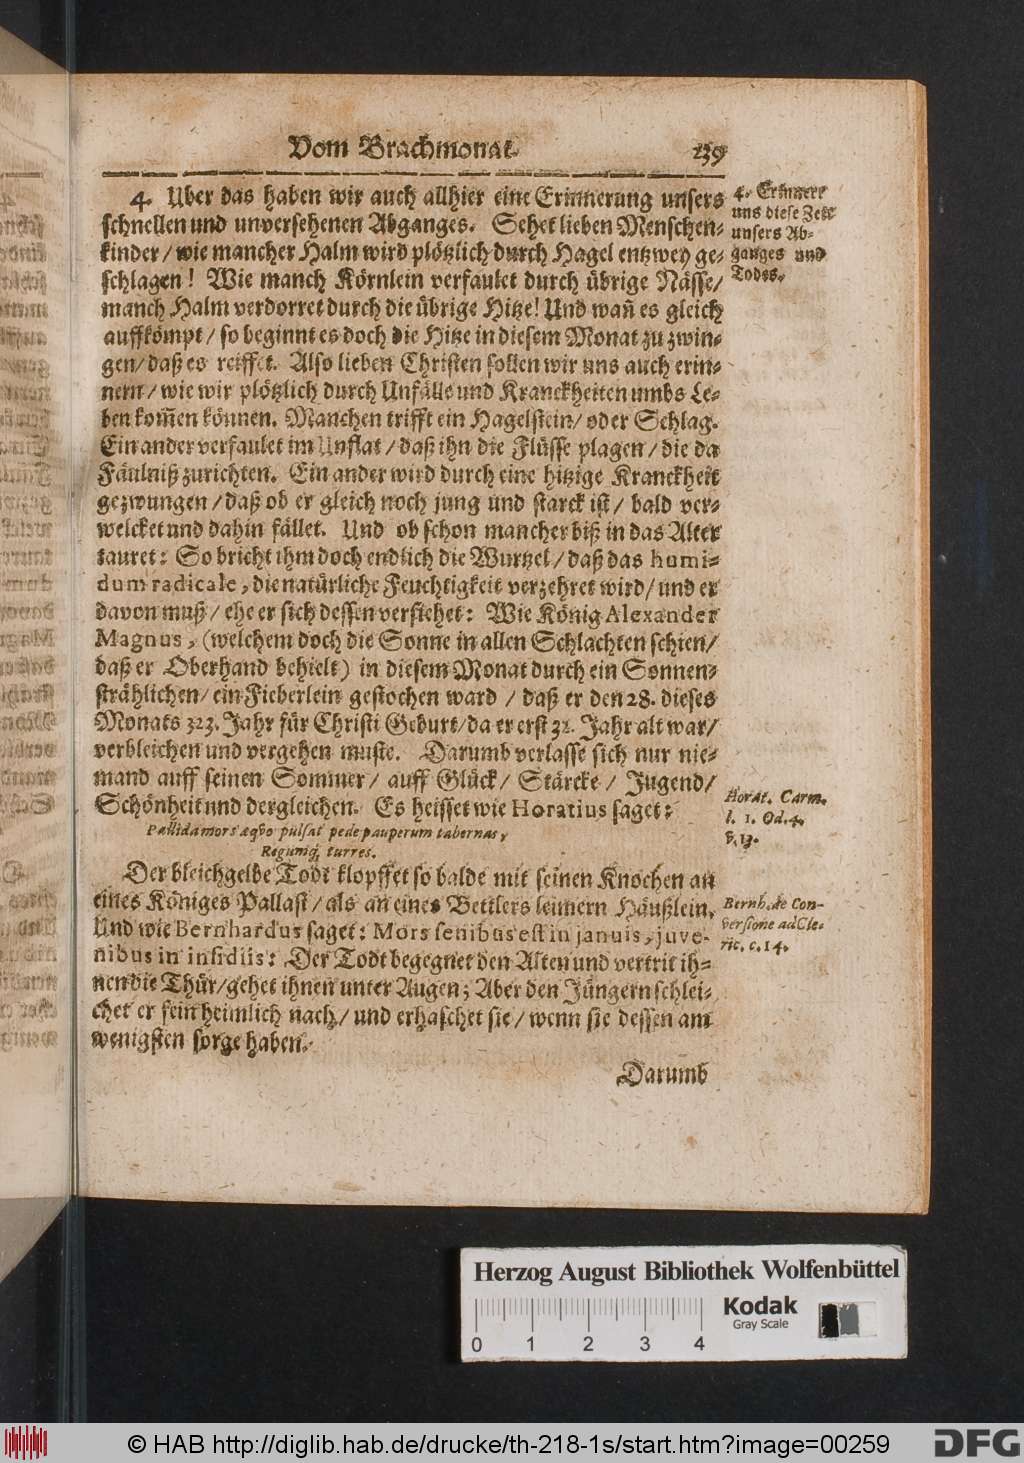 Vom Brachmonat. 239
4. Uber das haben wir auch allhier eine Erinnerung unsers
schnellen und unversehenen Abganges. Sehet lieben Menschen-
kinder / wie mancher Halm wird plötzlich durch Hagel entzwey ge-
schlagen! Wie manch Körnlein verfaulet durch übrige Nässe/
manch Halm verdorret durch die übrige Hitze! Und wañ es gleich
auffkömpt / so beginnt es doch die Hitze in diesem Monat zu zwin-
gen / daß es reiffet. Also lieben Christen sollen wir uns auch erin-
nern / wie wir plötzlich durch Unfälle und Kranckheiten umbs Le-
ben kom̄en können. Manchen trifft ein Hagelstein / oder Schlag.
Ein ander verfaulet im Unflat / daß ihn die Flüsse plagen / die da
Fäulniß zurichten. Ein ander wird durch eine hitzige Kranckheit
gezwungen / daß ob er gleich noch jung und starck ist / bald ver-
welcket und dahin fället. Und ob schon mancher biß in das Alter
tauret: So bricht ihm doch endlich die Wurtzel / daß das humi-
dum radicale, die natürliche Feuchtigkeit verzehret wird / und er
davon muß / ehe er sich dessen versiehet: Wie König Alexander
Magnus, (welchem doch die Sonne in allen Schlachten schien/
daß er Oberhand behielt) in diesem Monat durch ein Sonnen-
strählichen / ein Fieberlein gestochen ward / daß er den 28. dieses
Monats 323. Jahr für Christi Geburt / da er erst 32. Jahr alt war/
verbleichen und vergehen muste. Darumb verlasse sich nur nie-
mand auff seinen Sommer / auff Glück / Stärcke / Jugend/
Schönheit und dergleichen. Es heisset wie Horatius saget:
Pallida mors æqvo pulsat pede pauperum tabernas,
Regumq; turres.
Der bleichgelbe Todt klopffet so balde mit seinen Knochen an
eines Königes Pallast / als an eines Bettlers leimern Häußlein.
Und wie Bernhardus saget: Mors senibus est in januis, juve-
nibus in insidiis: Der Todt begegnet den Alten und vertrit ih-
nen die Thür / gehet ihnen unter Augen; Aber den Jüngern schlei-
chet er fein heimlich nach / und erhaschet sie / wenn sie dessen am
wenigsten sorge haben.
Darumb
4. Erinnert
uns diese Zeit
unsers Ab-
ganges und
Todes.
Horat. Carm.
l. 1. Od. 4.
v. 13.
Bernh. de Con-
versione ad Cle-
ric. c. 14.
Herzog August Bibliothek Wolfenbüttel
Kodak
Gray Scale
0 1 2 3 4
© HAB http://diglib.hab.de/drucke/th-218-1s/start.htm?image=00259
DFG